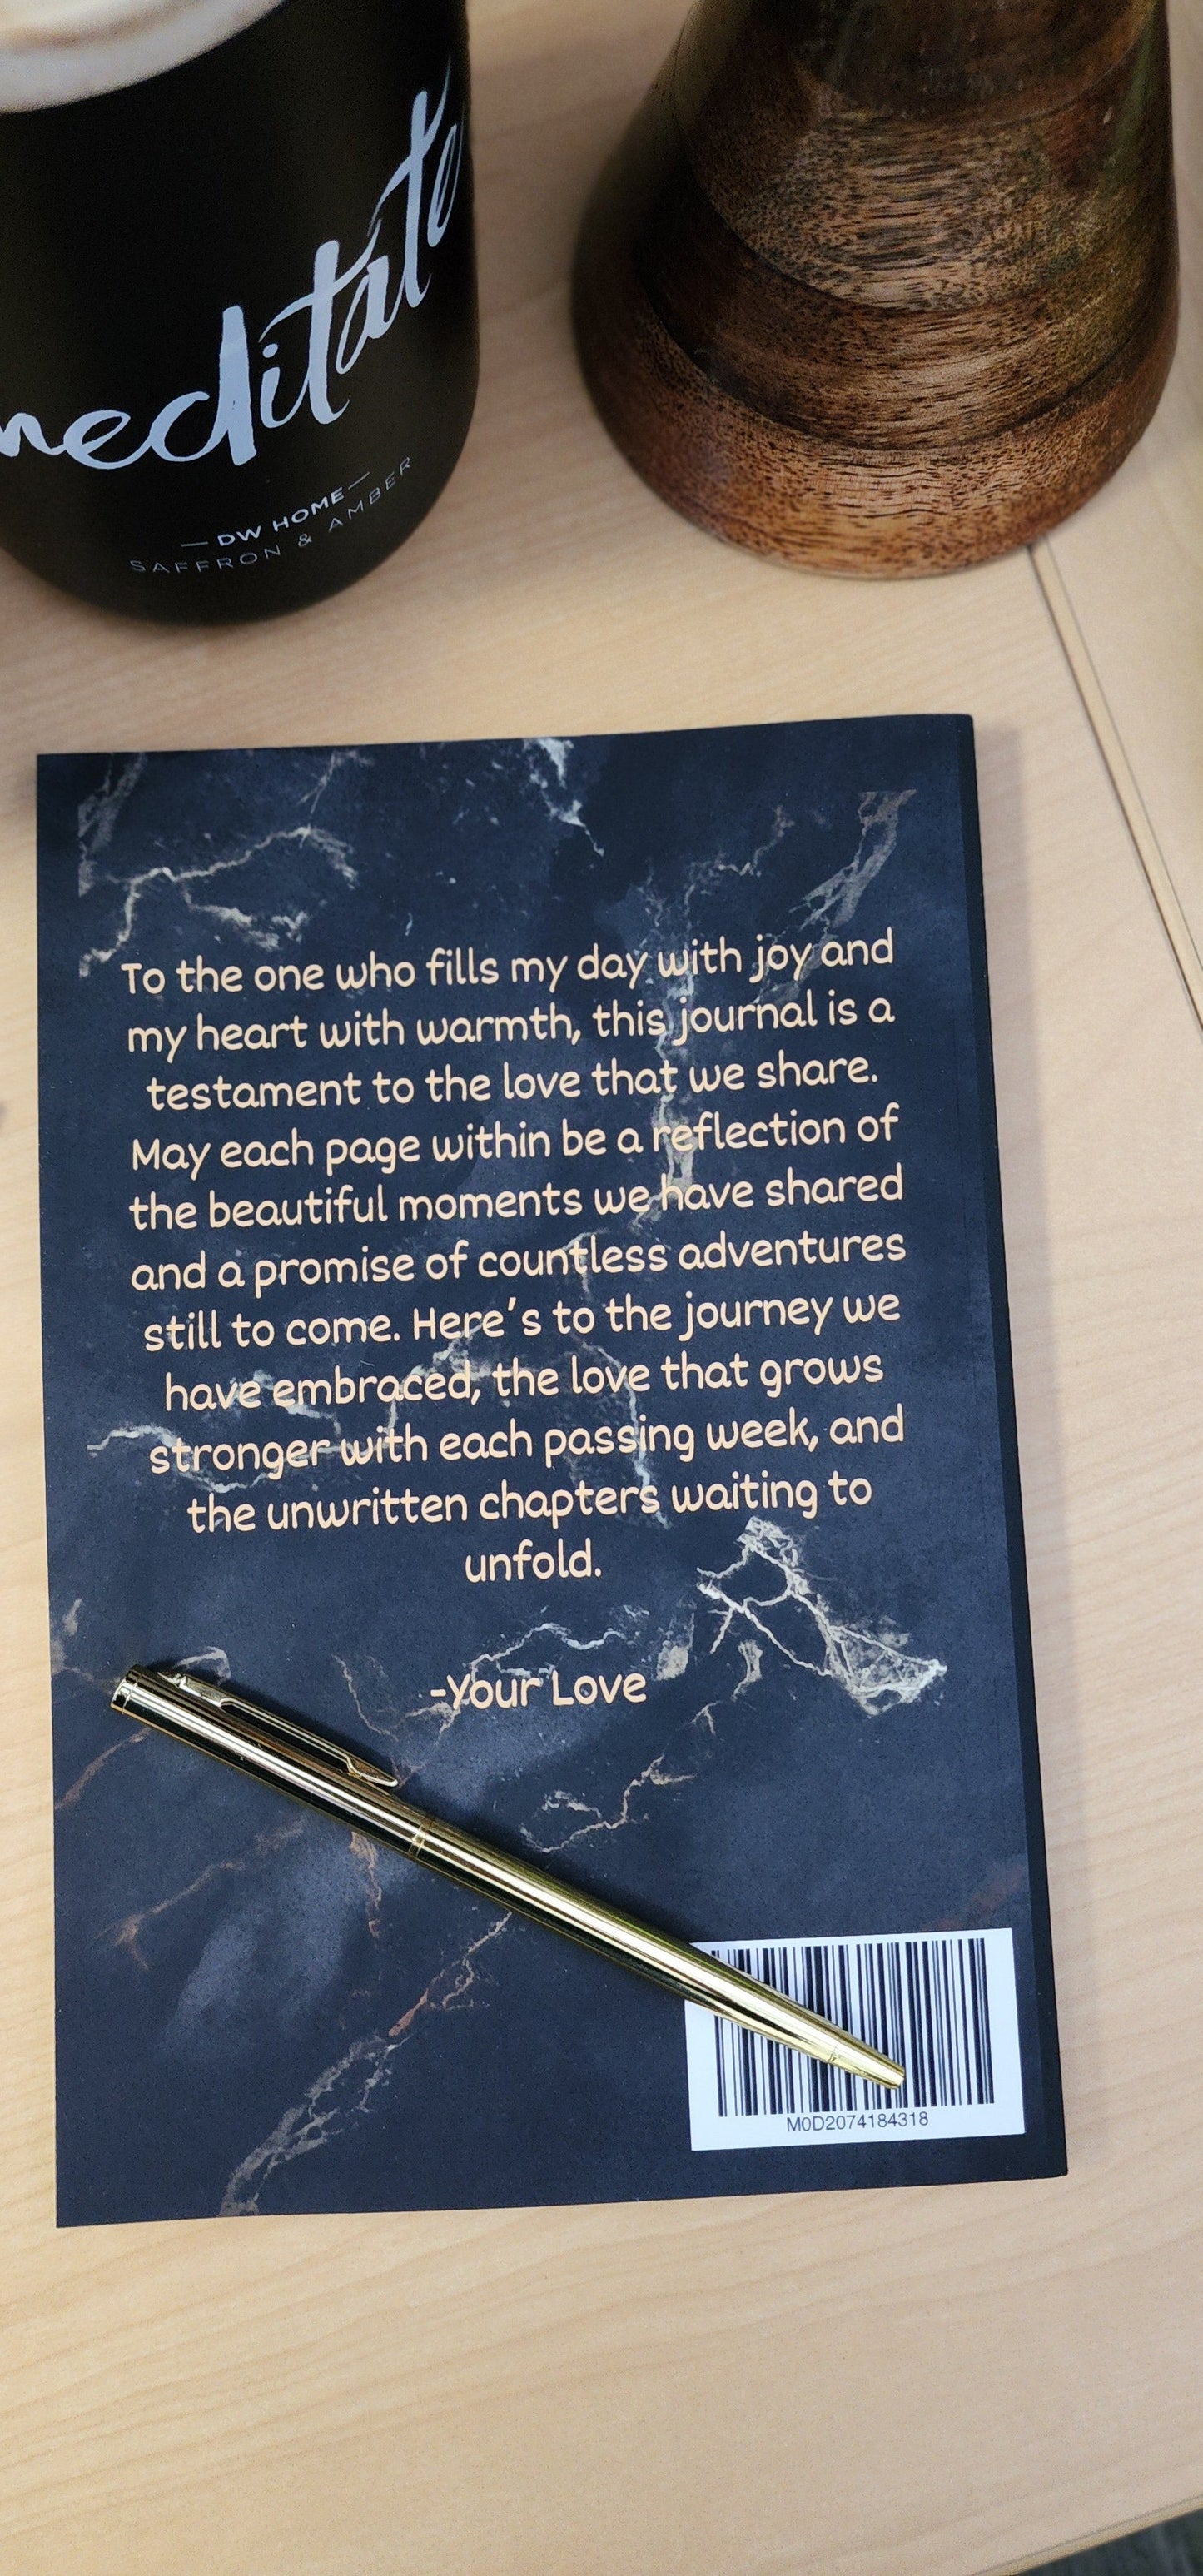 meditate
— DW HOME —
SAFFRON & AMBER
To the one who fills my day with joy and
my heart with warmth, this journal is a
testament to the love that we share.
May each page within be a reflection of
the beautiful moments we have shared
and a promise of countless adventures
still to come. Here's to the journey we
have embraced, the love that grows
stronger with each passing week, and
the unwritten chapters waiting to
unfold.
-Your Love
M0D2074184318